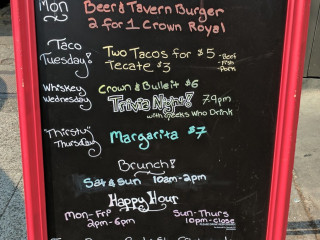 Mon Beer & Tavern Burger
2 for 1 Crown Royal
Taco
Tuesday! Two Tacos for $5 -Beef
-Fish
-Pork
Tecate $3
Whiskey
Wednesday Crown & Bulleit $6
Trivia Night! 7-9pm
with Geeks Who Drink
Thirsty
Thursday Margarita $7
Brunch!
Sat & Sun 10am-2pm
Happy Hour
Mon-Fri Sun-Thurs
2pm-6pm 10pm-close